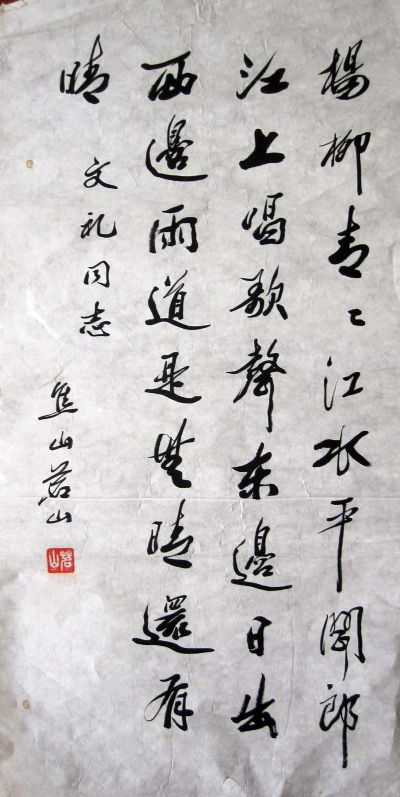 楊柳青〻江水平聞郎
江上唱歌聲東邊日出
西邊雨道是無晴還有
晴
文礼同志
焦山茗山
茗山